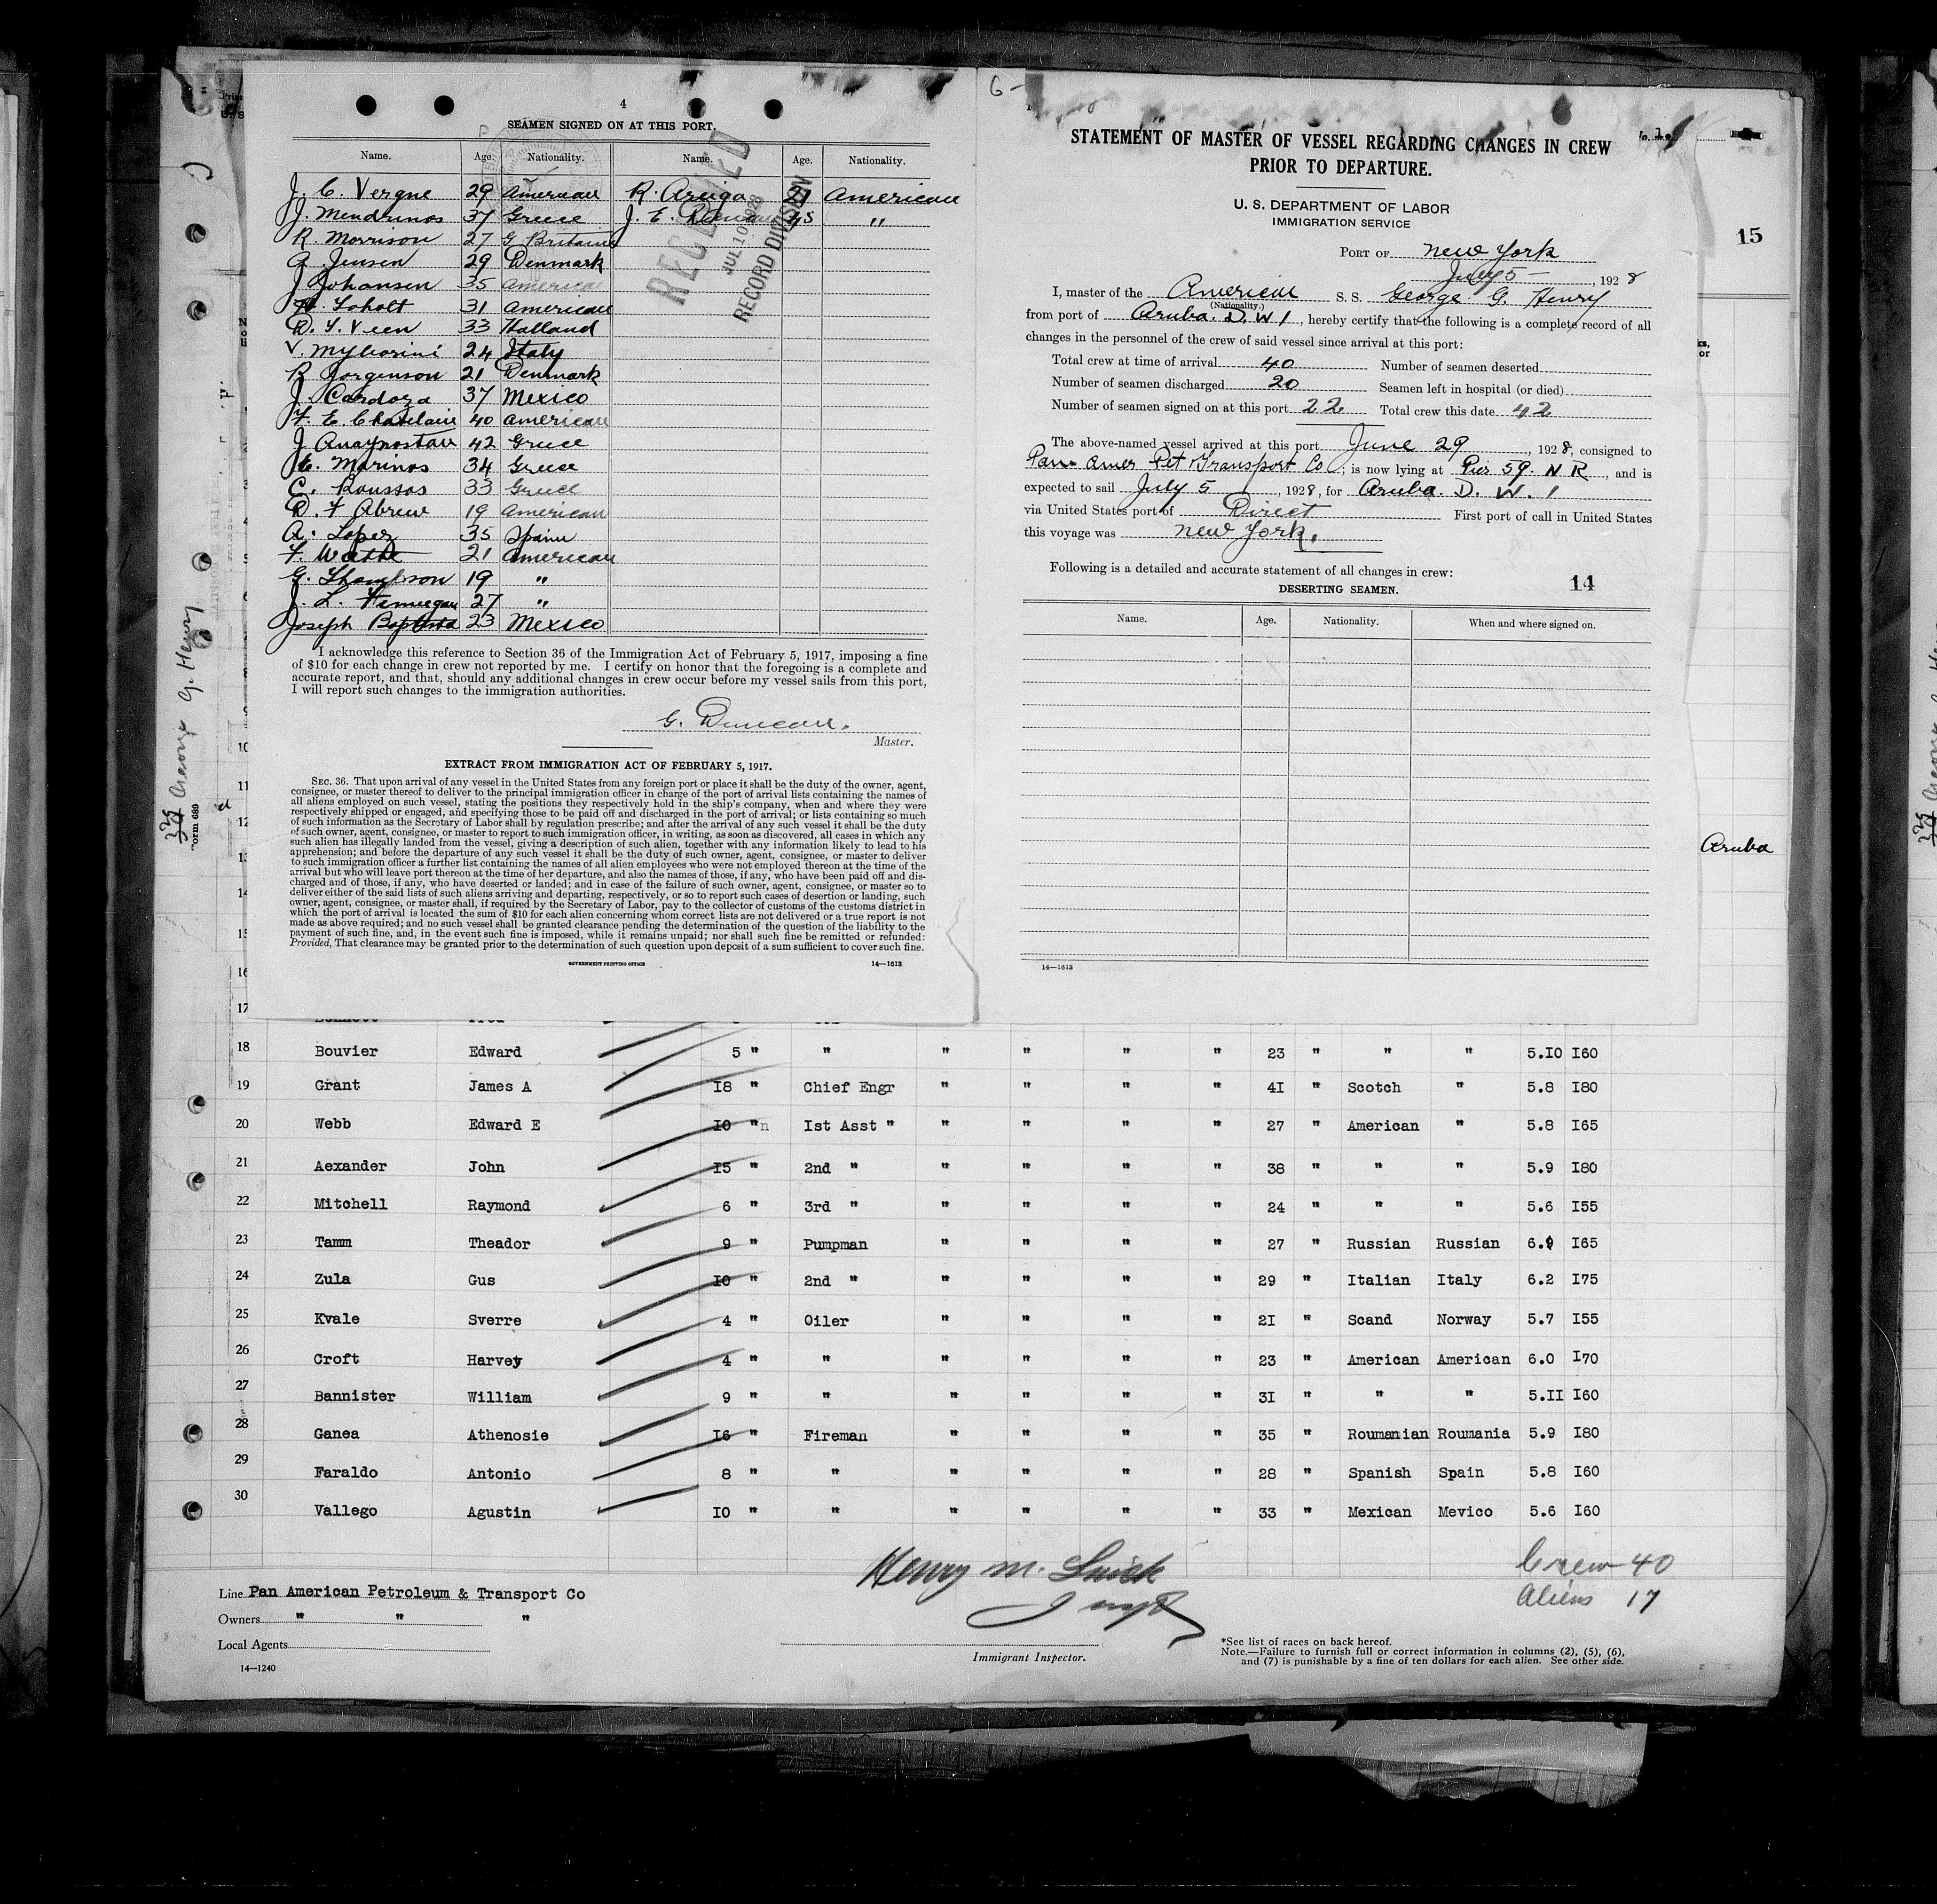 4
SEAMEN SIGNED ON AT THIS PORT.
Name. Age. Nationality. Name. Age. Nationality.
J. C. Vergne 29 American R. Areiga 21 American
J. Mendrinos 37 Greece J. E. 45 "
R. Morrison 27 G Britain
A. Jensen 29 Denmark
J Johansen 35 America
Soholt 31 American
D. Y. Veen 33 Holland
V. 24 Italy
R Jorgenson 21 Denmark
J. Cardoza 37 Mexico
F. E. Chatelain 40 American
J. 42 Greece
E. Marinos 34 Greece
C. Roussos 33 Greece
D. F Abrew 19 American
A. Lopez 35 Spain
F. 21 American
G. Thompson 19 "
J. L. Finnegan 27 "
Joseph Baptista 23 Mexico
RECEIVED
JUL 10 1928
RECORD DIVISION
I acknowledge this reference to Section 36 of the Immigration Act of February 5, 1917, imposing a fine
of $10 for each change in crew not reported by me. I certify on honor that the foregoing is a complete and
accurate report, and that, should any additional changes in crew occur before my vessel sails from this port,
I will report such changes to the immigration authorities.
G. Duncan.
Master.
EXTRACT FROM IMMIGRATION ACT OF FEBRUARY 5, 1917.
SEC. 36. That upon arrival of any vessel in the United States from any foreign port or place it shall be the duty of the owner, agent,
consignee, or master thereof to deliver to the principal immigration officer in charge of the port of arrival lists containing the names of
all aliens employed on such vessel, stating the positions they respectively hold in the ship's company, when and where they were
respectively shipped or engaged, and specifying those to be paid off and discharged in the port of arrival; or lists containing so much
of such information as the Secretary of Labor shall by regulation prescribe; and after the arrival of any such vessel it shall be the duty
of such owner, agent, consignee, or master to report to such immigration officer, in writing, as soon as discovered, all cases in which any
such alien has illegally landed from the vessel, giving a description of such alien, together with any information likely to lead to his
apprehension; and before the departure of any such vessel it shall be the duty of such owner, agent, consignee, or master to deliver
to such immigration officer a further list containing the names of all alien employees who were not employed thereon at the time of the
arrival but who will leave port thereon at the time of her departure, and also the names of those, if any, who have been paid off and dis-
charged and of those, if any, who have deserted or landed; and in case of the failure of such owner, agent, consignee, or master so to
deliver either of the said lists of such aliens arriving and departing, respectively, or so to report such cases of desertion or landing, such
owner, agent, consignee, or master shall, if required by the Secretary of Labor, pay to the collector of customs of the customs district in
which the port of arrival is located the sum of $10 for each alien concerning whom correct lists are not delivered or a true report is not
made as above required; and no such vessel shall be granted clearance pending the determination of the question of the liability to the
payment of such fine, and, in the event such fine is imposed, while it remains unpaid; nor shall such fine be remitted or refunded:
Provided, That clearance may be granted prior to the determination of such question upon deposit of a sum sufficient to cover such fine.
GOVERNMENT PRINTING OFFICE 14—1613
STATEMENT OF MASTER OF VESSEL REGARDING CHANGES IN CREW
PRIOR TO DEPARTURE.
U. S. DEPARTMENT OF LABOR
IMMIGRATION SERVICE
PORT OF New York
July 5 —, 1928
I, master of the American S. S. George G. Henry
(Nationality.)
from port of Aruba. D. W I, hereby certify that the following is a complete record of all
changes in the personnel of the crew of said vessel since arrival at this port:
Total crew at time of arrival 40 Number of seamen deserted
Number of seamen discharged 20 Seamen left in hospital (or died)
Number of seamen signed on at this port 22 Total crew this date 42
The above-named vessel arrived at this port June 29, 1928, consigned to
Pan Amer Pet Transport Co; is now lying at Pier 59. N R, and is
expected to sail July 5, 1928, for Aruba D. W. I
via United States port of Direct First port of call in United States
this voyage was New York.
Following is a detailed and accurate statement of all changes in crew:
14
DESERTING SEAMEN.
Name. Age. Nationality. When and where signed on.
14—1613
15
Aruba
George G. Henry
10
11
12
13
14
15
16
17
18 Bouvier Edward 5 " " " " " " 23 " " " 5.10 I60
19 Grant James A I8 " Chief Engr " " " " 4I " Scotch " 5.8 I80
20 Webb Edward E IO "n Ist Asst " " " " " 27 " American " 5.8 I65
21 Aexander John I5 " 2nd " " " " " 38 " " " 5.9 I80
22 Mitchell Raymond 6 " 3rd " " " " " 24 " " " 5.6 I55
23 Tamm Theador 9 " Pumpman " " " " 27 " Russian Russian 6.0 I65
24 Zula Gus IO " 2nd " " " " " 29 " Italian Italy 6.2 I75
25 Kvale Sverre 4 " Oiler " " " " 2I " Scand Norway 5.7 I55
26 Croft Harvey 4 " " " " " " 23 " American American 6.0 I70
27 Bannister William 9 " " " " " " 3I " " " 5.II I60
28 Ganea Athenosie I6 " Fireman " " " " 35 " Roumanian Roumania 5.9 I80
29 Faraldo Antonio 8 " " " " " " 28 " Spanish Spain 5.8 I60
30 Vallego Agustin IO " " " " " " 33 " Mexican Mevico 5.6 I60
Crew 40
Aliens 17
Line Pan American Petroleum & Transport Co
Owners " " "
Local Agents
14—1240
Henry M.
Immigrant Inspector.
*See list of races on back hereof.
Note.—Failure to furnish full or correct information in columns (2), (5), (6),
and (7) is punishable by a fine of ten dollars for each alien. See other side.